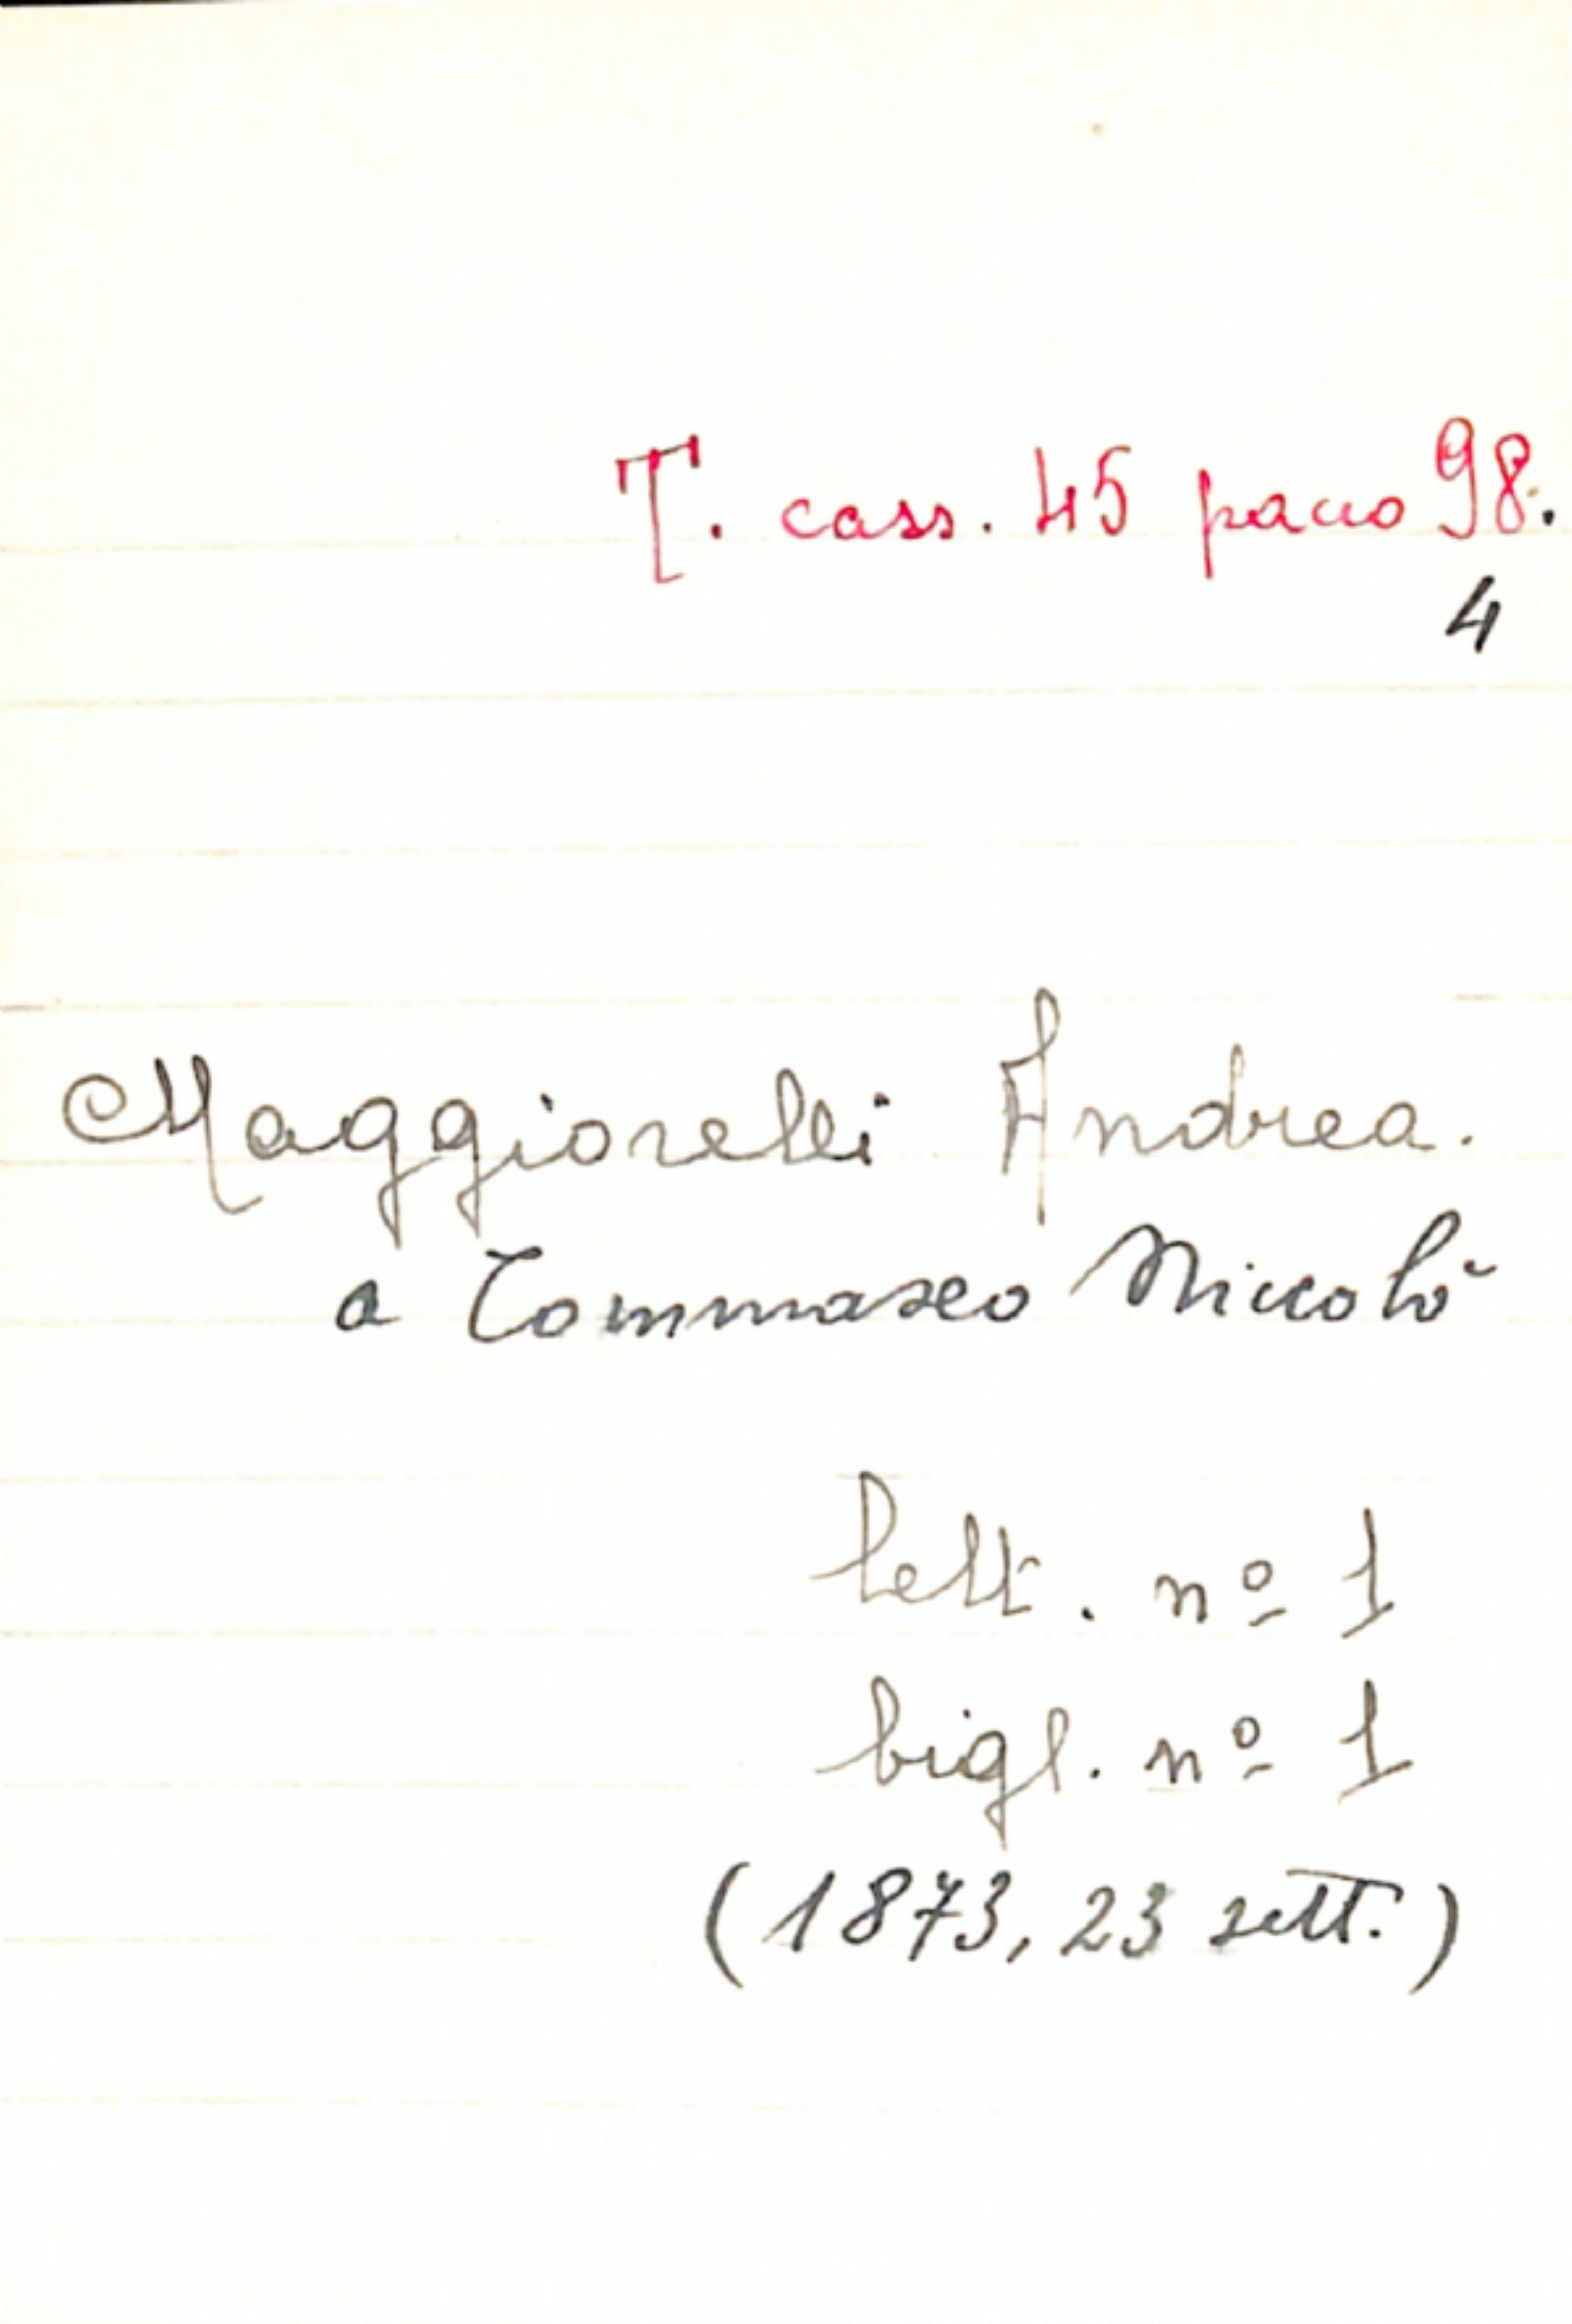 T. cass. 45 pacco 98.
4
Maggiorelli Andrea.
a Tommaseo Niccolò
lett. nº 1
bigl. nº 1
(1873, 23 sett.)